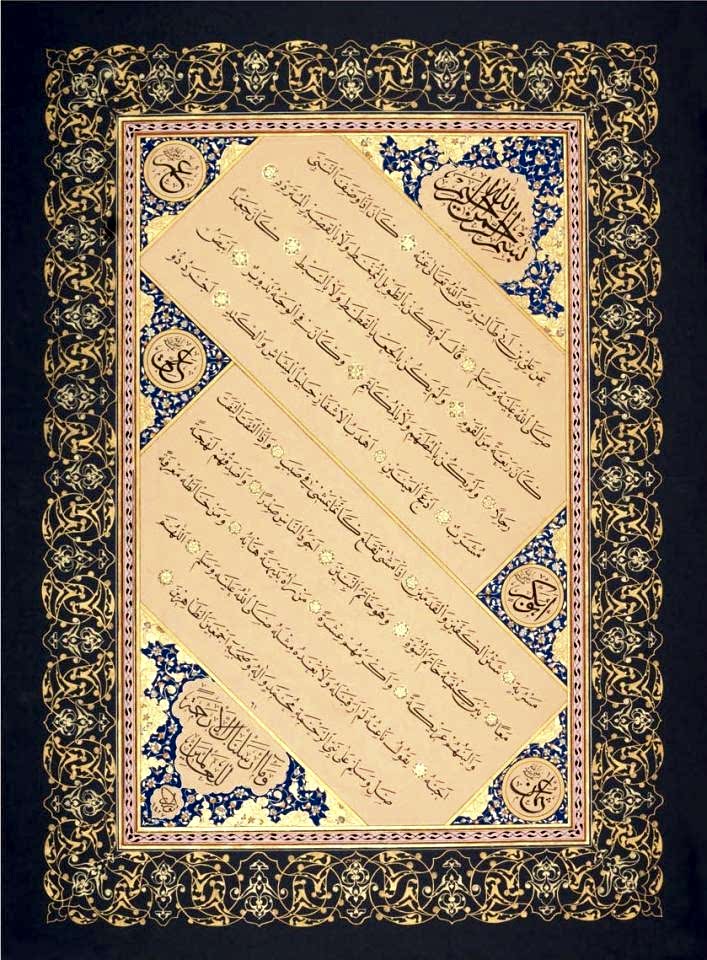 بسم الله الرحمن الرحيم
عن علي بن ابي طالب رضي الله تعالى عنه كان اذا وصف النبي
صلى الله عليه وسلم قال لم يكن بالطويل الممغط ولا بالقصير المتردد
كان ربعة من القوم ولم يكن بالجعد القطط ولا بالسبط كان جعدا
رجلا ولم يكن بالمطهم ولا بالمكلثم وكان في الوجه تدوير ابيض
مشرب ادعج العينين اهدب الاشفار جليل المشاش والكتد اجرد ذو
مسربة شثن الكفين والقدمين اذا مشى تقلع كأنما يمشي في صبب واذا التفت التفت
معا بين كتفيه خاتم النبوة وهو خاتم النبيين اجود الناس صدرا واصدقهم لهجة
والينهم عريكة واكرمهم عشرة من رآه بديهة هابه ومن خالطه معرفة
احبه يقول ناعته لم ار قبله ولا بعده مثله صلى الله عليه وسلم اللهم
صل وسلم على نبي الرحمة محمد وآله وصحبه اجمعين الطاهرين
عمر
ابوبكر
وما ارسلناك الا رحمة
للعالمين